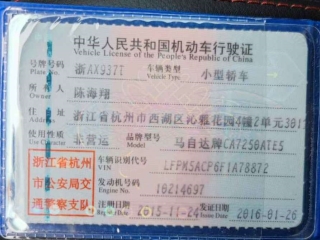 中华人民共和国机动车行驶证
Vehicle License of the People's Republic of China
号牌号码 浙AX937T 车辆类型 小型轿车
Plate No. Vehicle Type
所有人 陈海翔
Owner
住址 浙江省杭州市西湖区沁雅花园4幢2单元301
Address
使用性质 非营运 品牌型号 马自达牌CA7256ATE5
Use Character Model
浙江省杭州市公安局交通警察支队
车辆识别代号 LFPM5ACP6F1A78872
VIN
发动机号码 10214697
Engine No.
注册日期 2015-11-24 发证日期 2016-01-26
Register Date Issue Date